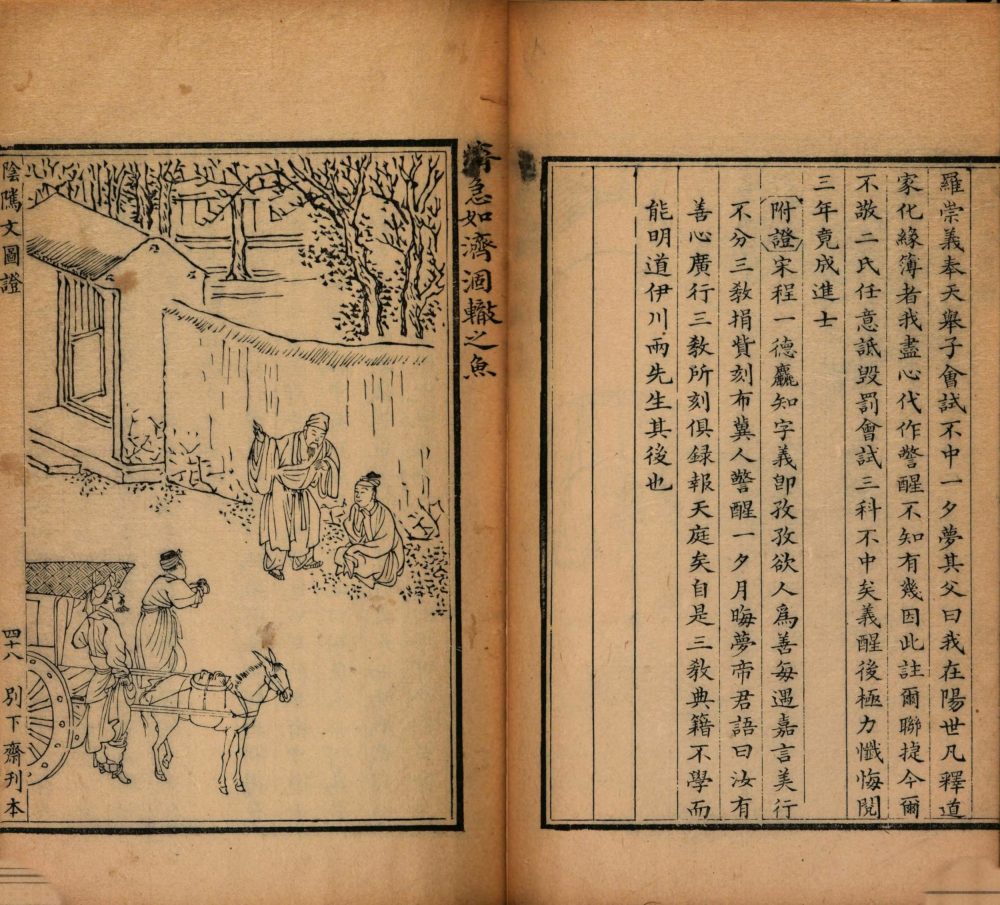 羅崇義奉天舉子會試不中一夕夢其父曰我在陽世凡釋道
家化緣簿者我盡心代作警醒不知有幾因此註爾聯捷今爾
不敬二氏任意詆毀罰會試三科不中矣義醒後極力懺悔閱
三年竟成進士
附證宋程一德麤知字義卽孜孜欲人爲善每遇嘉言美行
不分三敎捐貲刻布冀人警醒一夕月晦夢帝君語曰汝有
善心廣行三敎所刻俱録報天庭矣自是三敎典籍不學而
能明道伊川兩先生其後也
濟急如濟涸轍之魚
陰隲文圖證
四十八
別下齋刊本